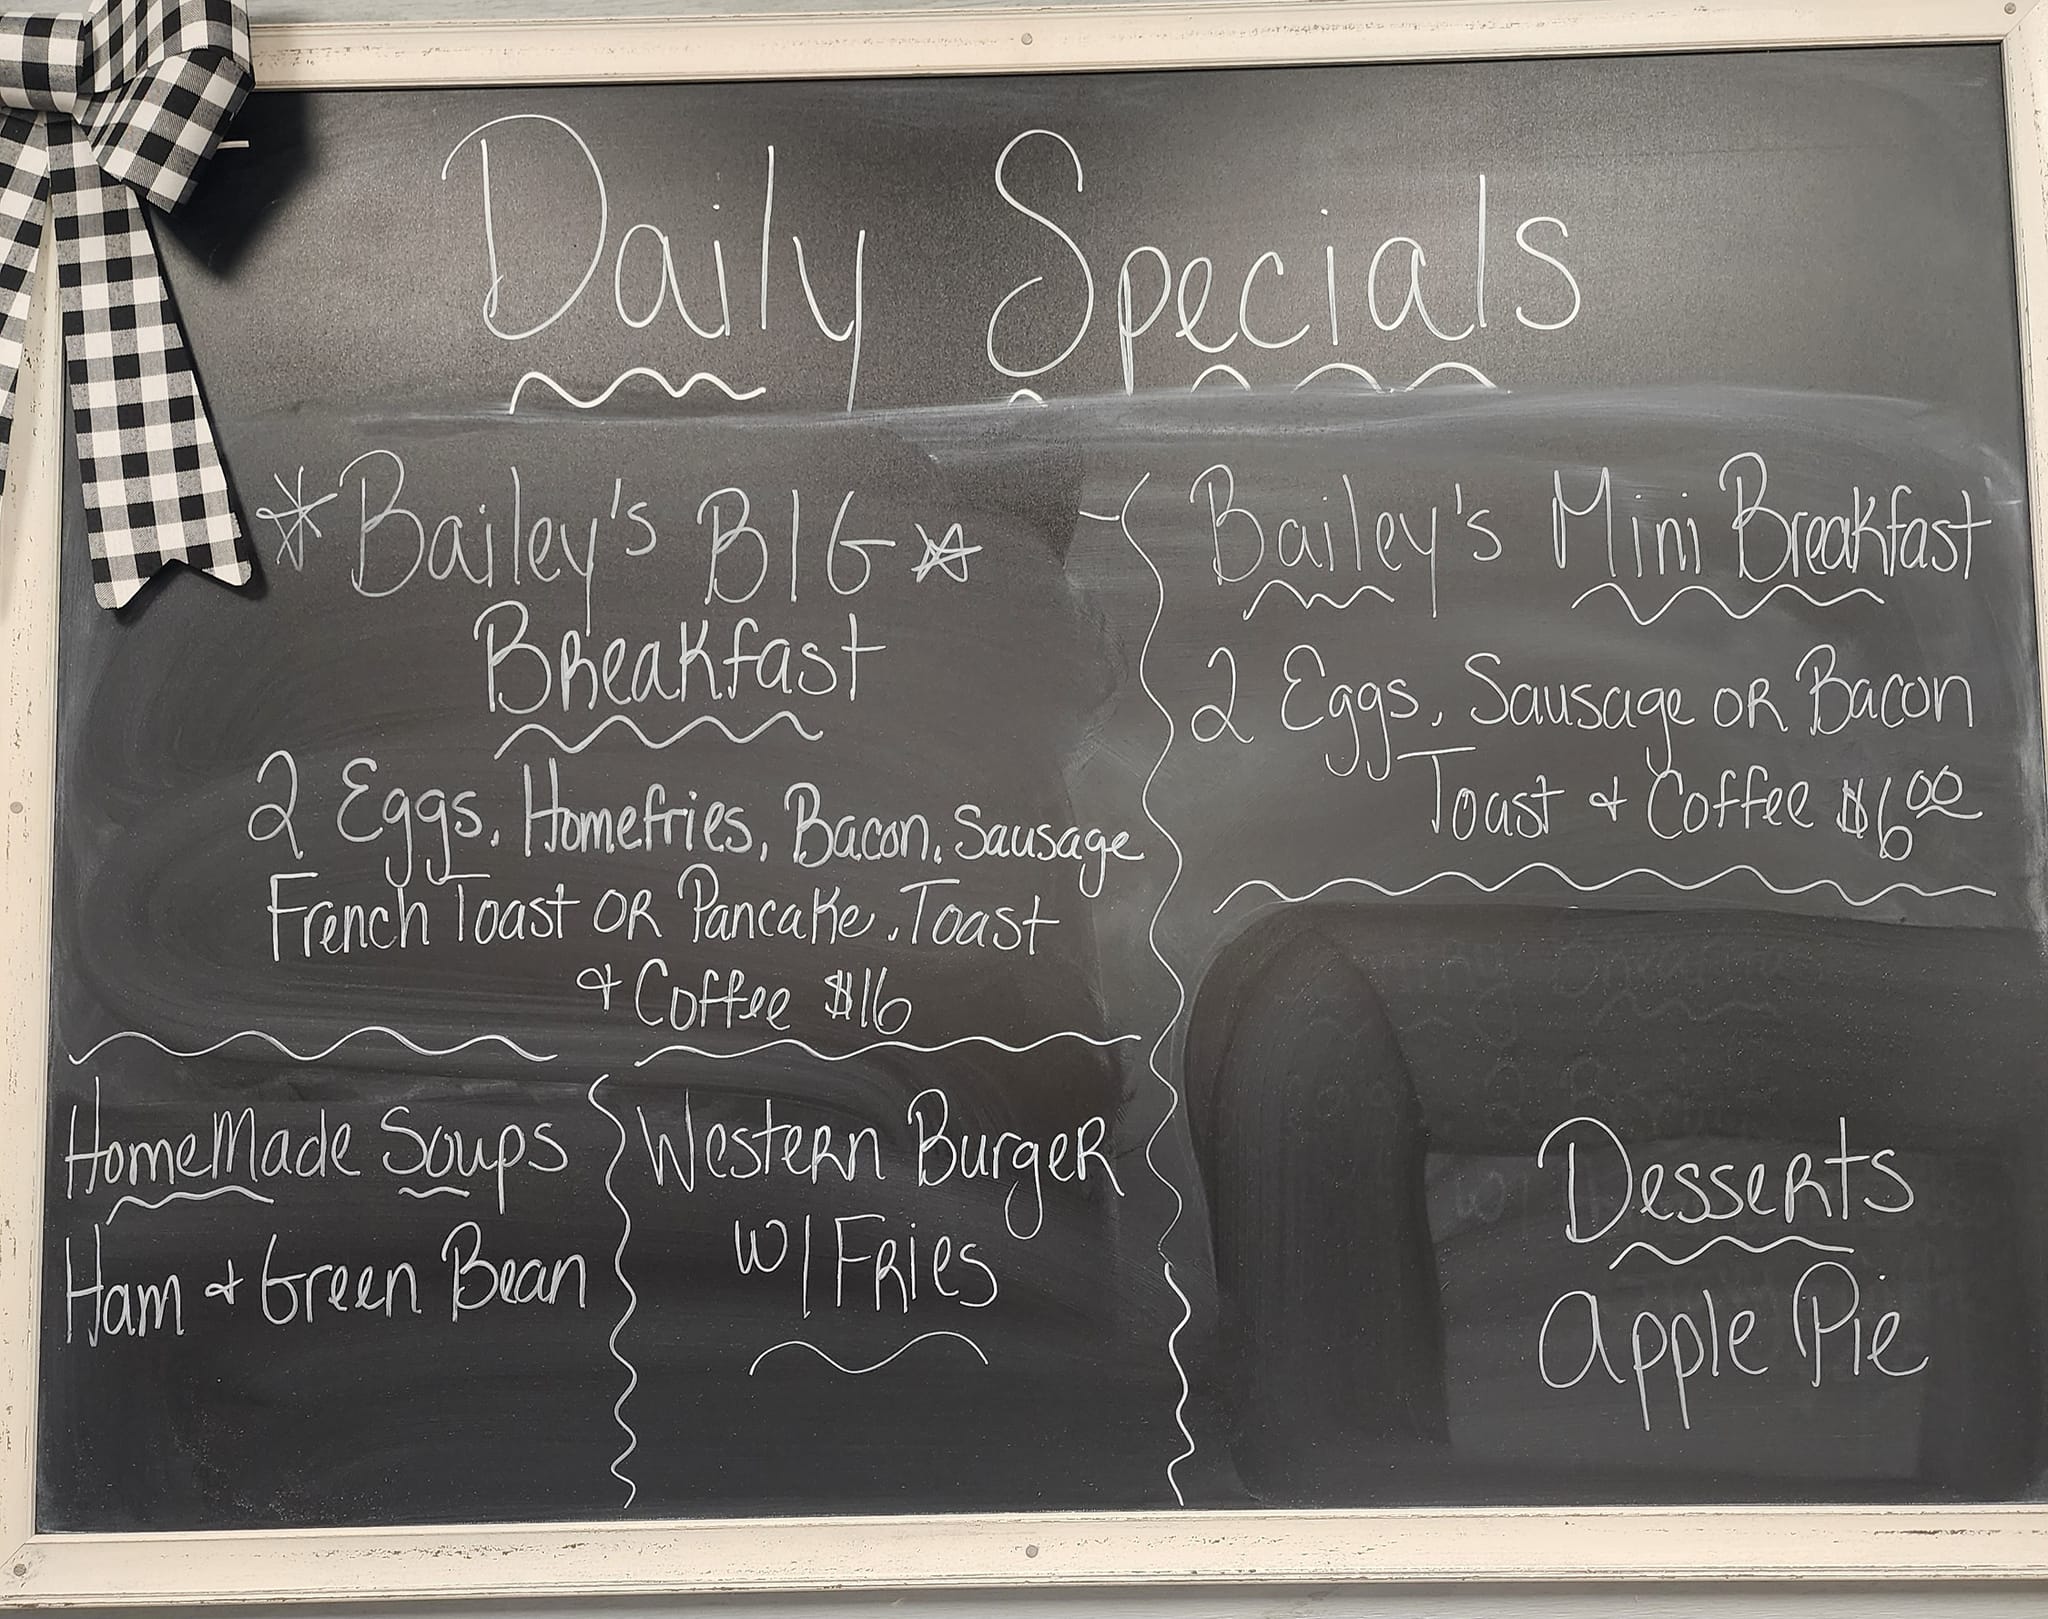 Daily Specials
*Bailey's BIG☆
Breakfast
2 Eggs, Homefries, Bacon, Sausage
French Toast OR Pancake, Toast
& Coffee $16
Bailey's Mini Breakfast
2 Eggs, Sausage OR Bacon
Toast & Coffee $600
HomeMade Soups
Ham & Green Bean
Western Burger
w/ Fries
Desserts
Apple Pie